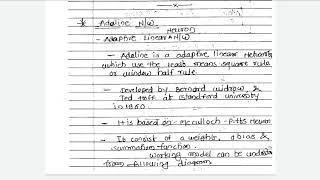 * Adaline N/W
Neuron
- Adaptive Linear N/W
- Adaline is a adaptive linear
which use the least means square rule
or window half rule.
- Developed by Bernard widrow &
Ted Hoff at standford university
in 1960.
- It is based on mcculloch-Pitts neuron
- It consist of a weights, a bias &
summation function.
Working model can be
from following diagram